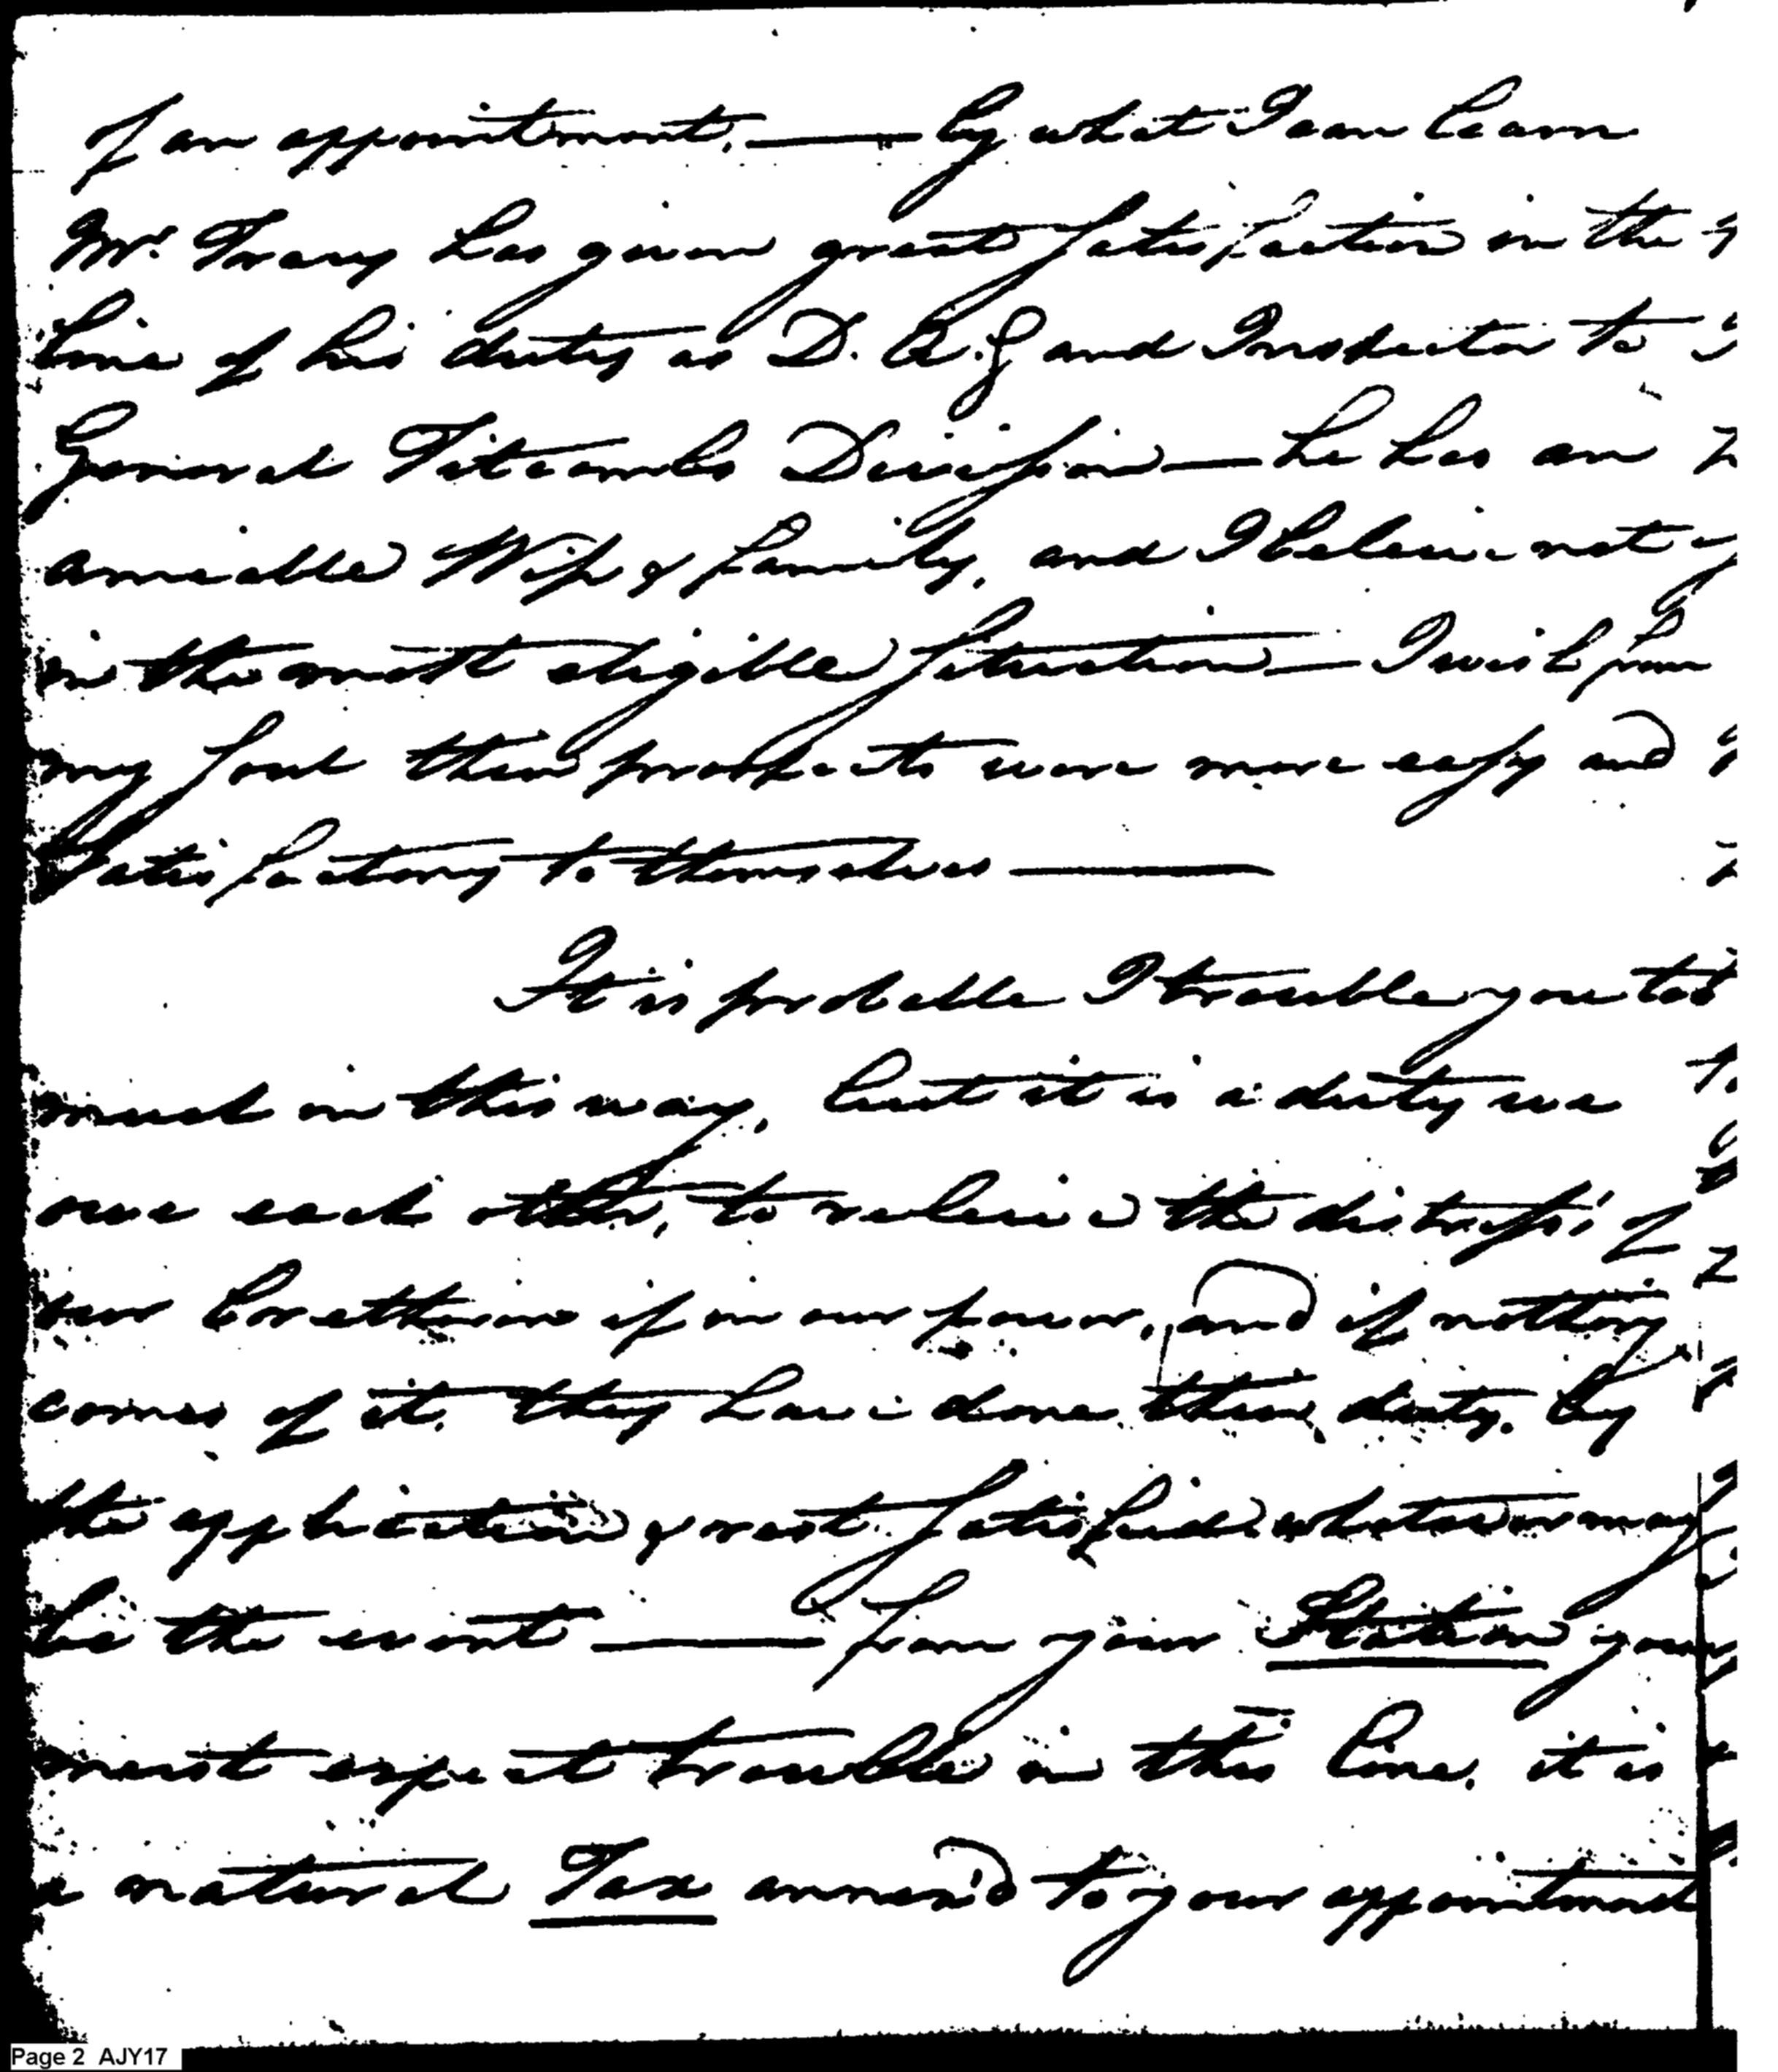 of an appointment, — by what I can learn
Mr. Tracy has given great satisfaction in the
line of his duty as D. Q. G and Inspector to
General Titcombs Division — he has an
amiable Wife & family, and I beleive not
in the most eligible situation — I wish from
my soul their prospects were more easy and
satisfactory to themselves —
It is probable I trouble you too
much in this way, but it is a duty we
owe each other, to releive the distress'd of
our Bretheren if in our power, and if nothing
comes of it, they have done their duty. by
the application & rest satisfied whatever may
be the event — from your Station you
must expect trouble in this line, it is
a natural Tax annex'd to your appointment
Page 2 AJY17